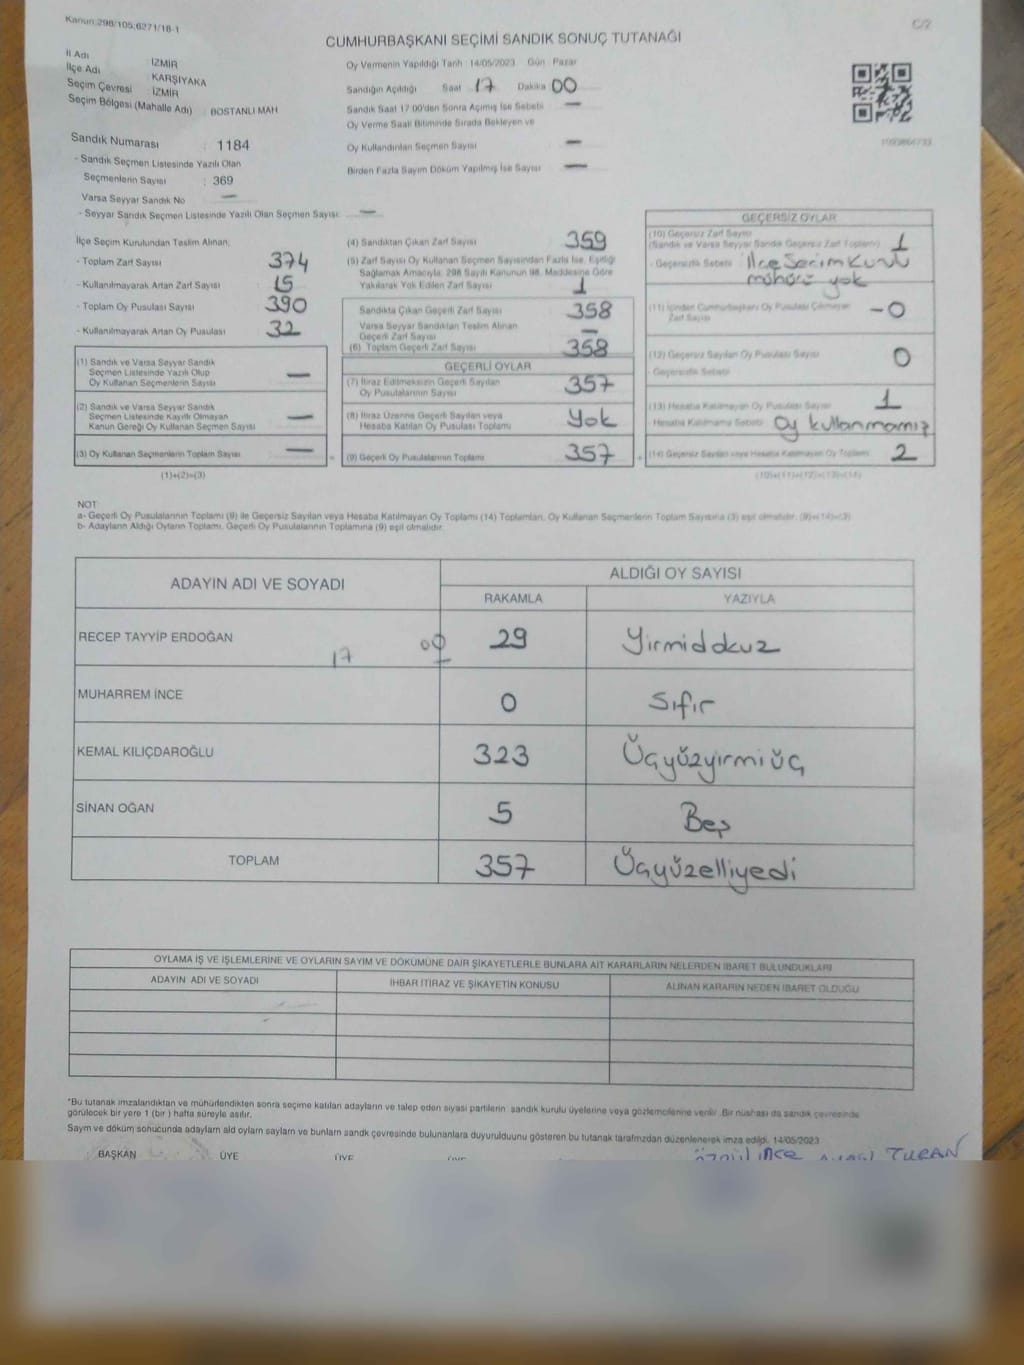 Kanun:298/105;6271/18-1
C/2
CUMHURBAŞKANI SEÇİMİ SANDIK SONUÇ TUTANAĞI
İl Adı : İZMİR
İlçe Adı : KARŞIYAKA
Seçim Çevresi : İZMİR
Seçim Bölgesi (Mahalle Adı) : BOSTANLI MAH
Sandık Numarası : 1184
- Sandık Seçmen Listesinde Yazılı Olan
Seçmenlerin Sayısı : 369
Varsa Seyyar Sandık No —
- Seyyar Sandık Seçmen Listesinde Yazılı Olan Seçmen Sayısı: —
Oy Vermenin Yapıldığı Tarih :14/05/2023 Gün : Pazar
Sandığın Açıldığı Saat 17 Dakika 00
Sandık Saat 17:00'den Sonra Açılmış İse Sebebi —
Oy Verme Saati Bitiminde Sırada Bekleyen ve
Oy Kullandırılan Seçmen Sayısı —
Birden Fazla Sayım Döküm Yapılmış İse Sayısı —
İlçe Seçim Kurulundan Teslim Alınan;
- Toplam Zarf Sayısı 374
- Kullanılmayarak Artan Zarf Sayısı 15
- Toplam Oy Pusulası Sayısı 390
- Kullanılmayarak Artan Oy Pusulası 32
(1) Sandık ve Varsa Seyyar Sandık
Seçmen Listesinde Yazılı Olup
Oy Kullanan Seçmenlerin Sayısı —
(2) Sandık ve Varsa Seyyar Sandık
Seçmen Listesinde Kayıtlı Olmayan
Kanun Gereği Oy Kullanan Seçmen Sayısı —
(3) Oy Kullanan Seçmenlerin Toplam Sayısı —
(1)+(2)=(3)
(4) Sandıktan Çıkan Zarf Sayısı 359
(5) Zarf Sayısı Oy Kullanan Seçmen Sayısından Fazla İse, Eşitliği
Sağlamak Amacıyla, 298 Sayılı Kanunun 98. Maddesine Göre
Yakılarak Yok Edilen Zarf Sayısı 1
Sandıkta Çıkan Geçerli Zarf Sayısı 358
Varsa Seyyar Sandıktan Teslim Alınan
Geçerli Zarf Sayısı —
(6) Toplam Geçerli Zarf Sayısı 358
GEÇERLİ OYLAR
(7) İtiraz Edilmeksizin Geçerli Sayılan
Oy Pusulalarının Sayısı 357
(8) İtiraz Üzerine Geçerli Sayılan veya
Hesaba Katılan Oy Pusulası Toplamı Yok
(9) Geçerli Oy Pusulalarının Toplamı 357
GEÇERSİZ OYLAR
(10) Geçersiz Zarf Sayısı
(Sandık ve Varsa Seyyar Sandık Geçersiz Zarf Toplamı) 1
- Geçersizlik Sebebi İlçe Seçim Kurulu
mühürü yok
(11) İçinden Cumhurbaşkanı Oy Pusulası Çıkmayan
Zarf Sayısı -0
(12) Geçersiz Sayılan Oy Pusulası Sayısı 0
- Geçersizlik Sebebi
(13) Hesaba Katılmayan Oy Pusulası Sayısı 1
Hesaba Katılmama Sebebi Oy kullanmamış
(14) Geçersiz Sayılan veya Hesaba Katılmayan Oy Toplamı 2
(10)+(11)+(12)+(13)=(14)
NOT:
a- Geçerli Oy Pusulalarının Toplamı (9) ile Geçersiz Sayılan veya Hesaba Katılmayan Oy Toplamı (14) Toplamları, Oy Kullanan Seçmenlerin Toplam Sayısına (3) eşit olmalıdır. (9)+(14)=(3)
b- Adayların Aldığı Oyların Toplamı, Geçerli Oy Pusulalarının Toplamına (9) eşit olmalıdır.
ADAYIN ADI VE SOYADI
ALDIĞI OY SAYISI
RAKAMLA YAZIYLA
RECEP TAYYİP ERDOĞAN 29 Yirmidokuz
17 00
MUHARREM İNCE 0 Sıfır
KEMAL KILIÇDAROĞLU 323 Üçyüzyirmiüç
SİNAN OĞAN 5 Beş
TOPLAM 357 Üçyüzelliyedi
OYLAMA İŞ VE İŞLEMLERİNE VE OYLARIN SAYIM VE DÖKÜMÜNE DAİR ŞİKAYETLERLE BUNLARA AİT KARARLARIN NELERDEN İBARET BULUNDUKLARI
ADAYIN ADI VE SOYADI İHBAR İTİRAZ VE ŞİKAYETİN KONUSU ALINAN KARARIN NEDEN İBARET OLDUĞU
"Bu tutanak imzalandıktan ve mühürlendikten sonra seçime katılan adayların ve talep eden siyasi partilerin sandık kurulu üyelerine veya gözlemcilerine verilir. Bir nüshası da sandık çevresinde
görülecek bir yere 1 (bir ) hafta süreyle asılır.
Sayım ve döküm sonucunda adayların ald oyların sayıları ve bunların sandk çevresinde bulunanlara duyurulduunu gösteren bu tutanak tarafmzdan düzenlenerek imza edildi. 14/05/2023
BAŞKAN ÜYE ÜYE TURAN